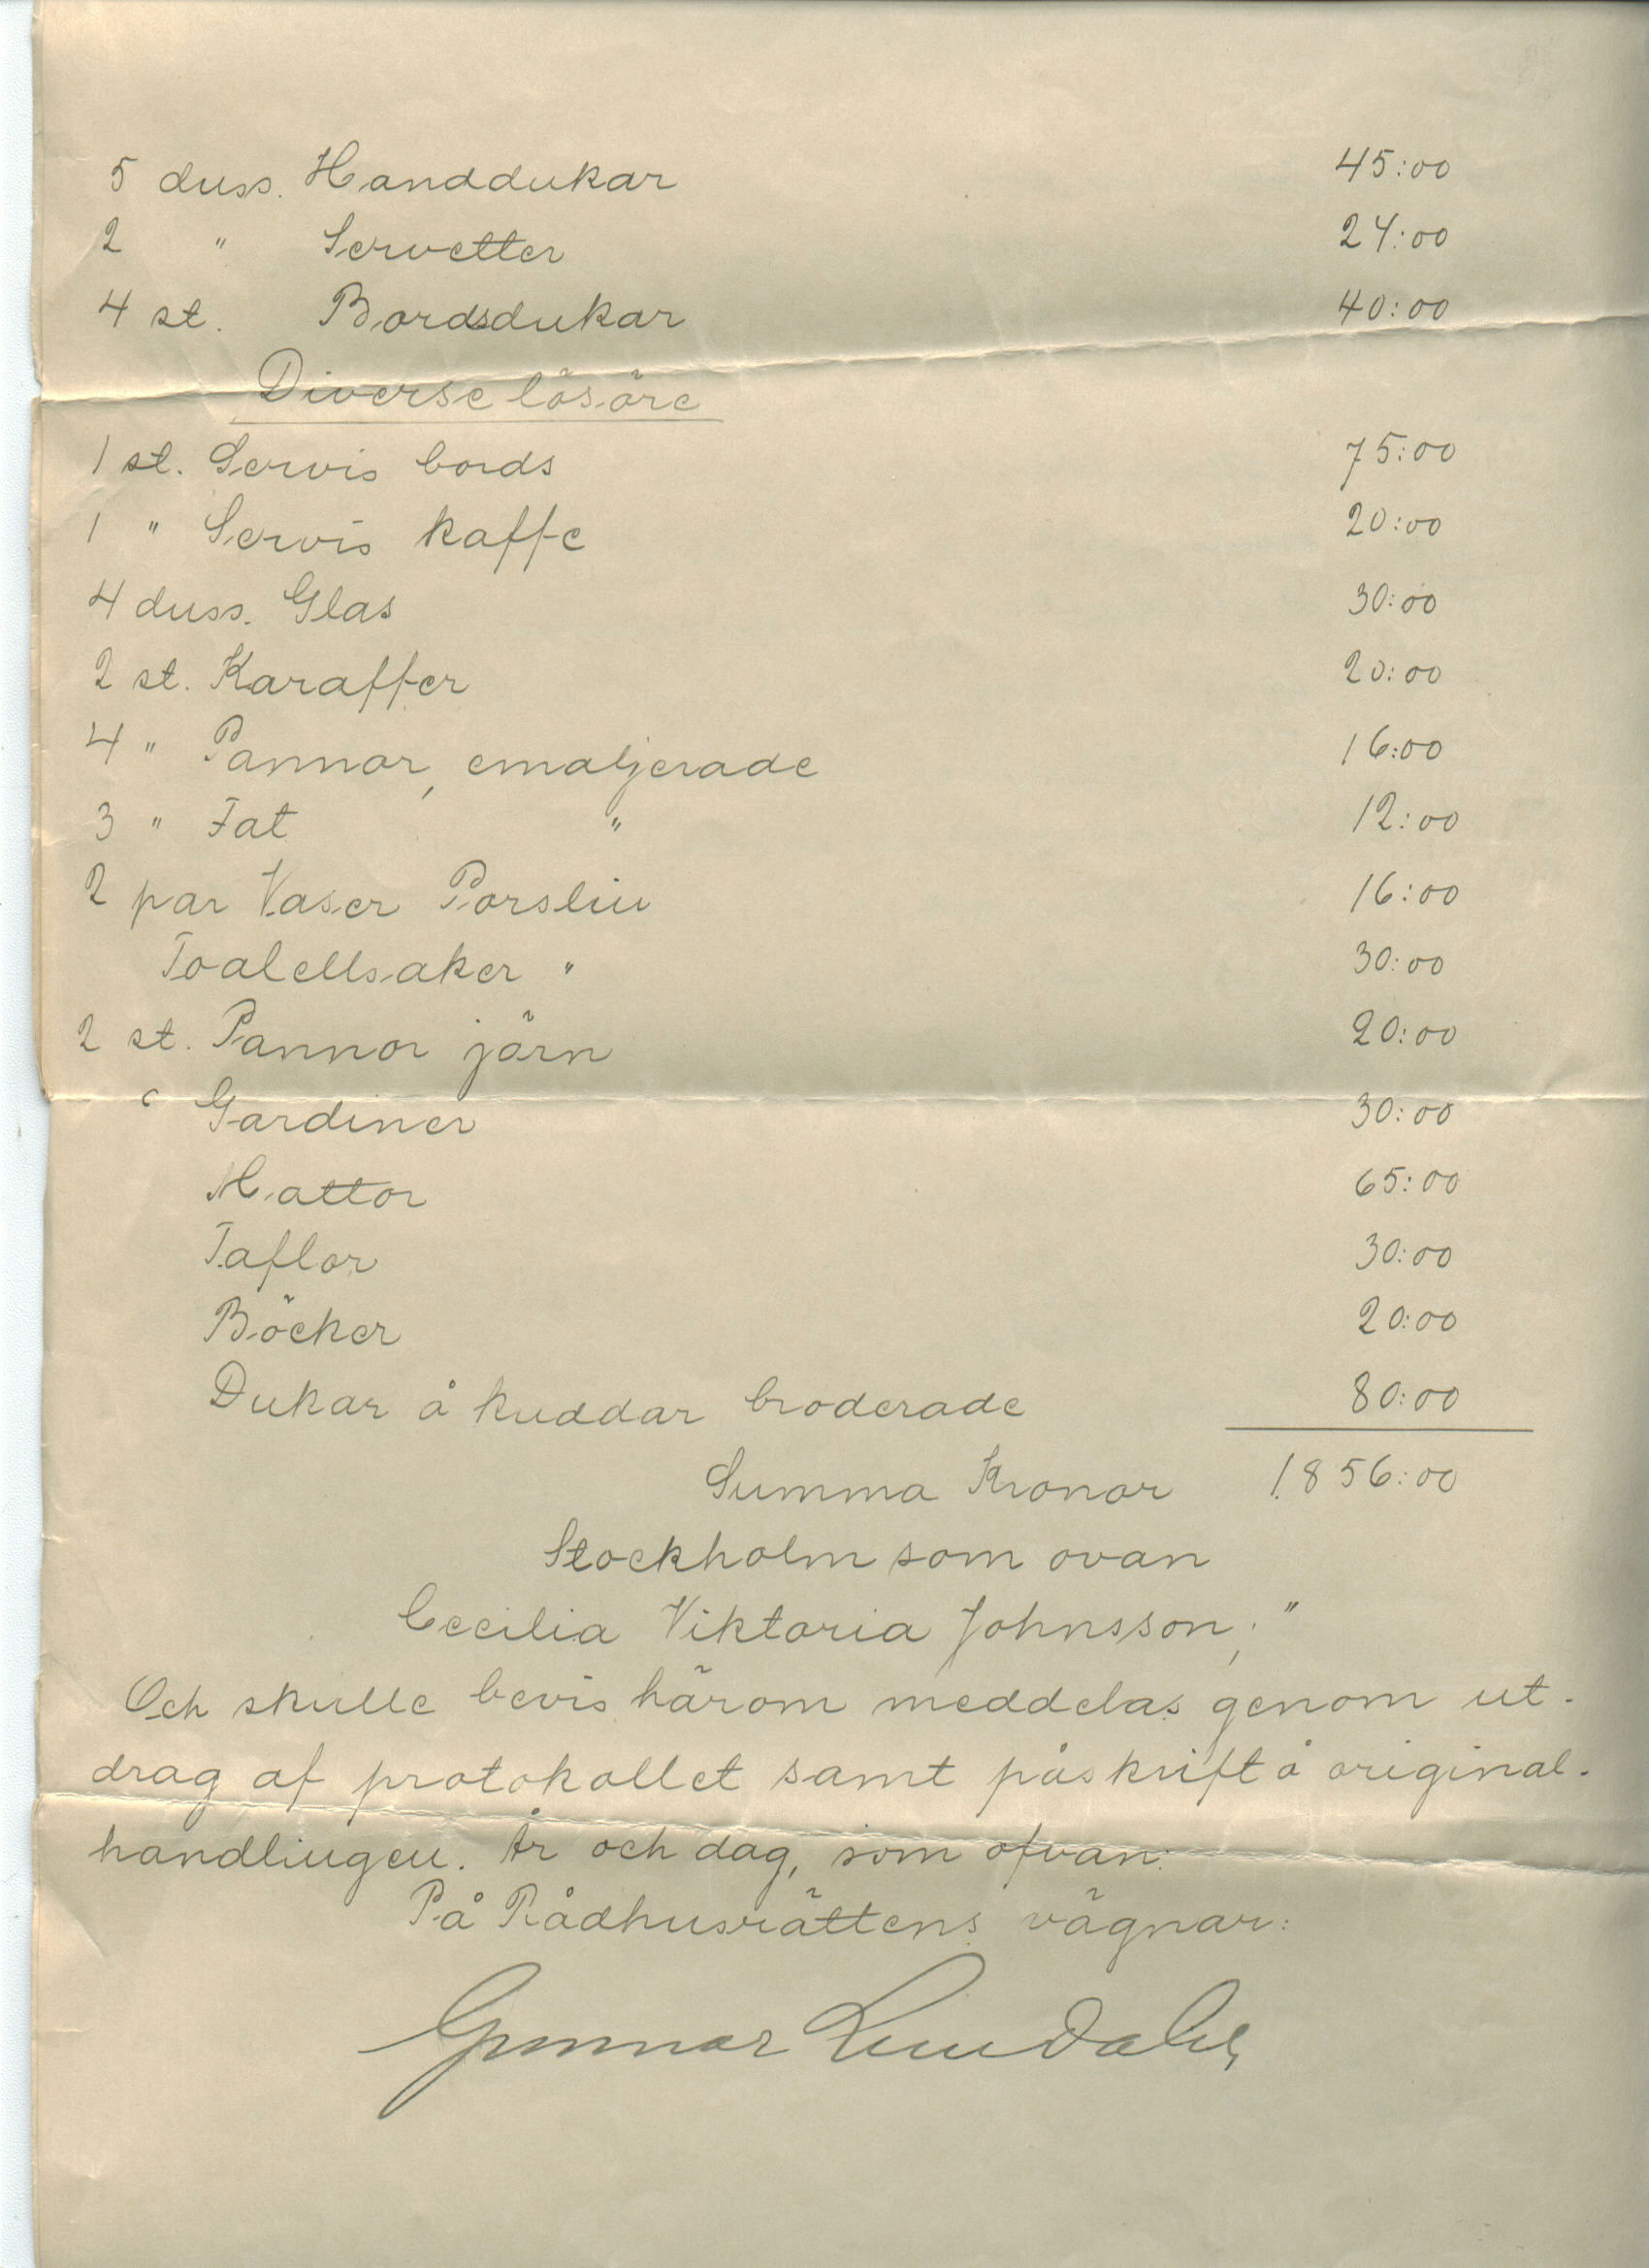 5 duss. Handdukar 45:00
2 " Servetter 24:00
4 st. Bordsdukar 40:00
Diverse lösöre
1 st. Servis bords 75:00
1 " Servis kaffe 20:00
4 duss. Glas 30:00
2 st. Karaffer 20:00
4 " Pannor, emaljerade 16:00
3 " Fat " 12:00
2 par Vaser Porslin 16:00
Toalettsaker " 30:00
2 st. Pannor järn 20:00
Gardiner 30:00
Mattor 65:00
Taflor 30:00
Böcker 20:00
Dukar å kuddar broderade 80:00
Summa Kronor 1.856:00
Stockholm som ovan
Cecilia Viktoria Johnsson;"
Och skulle bevis härom meddelas genom ut-
drag af protokollet samt påskrift å original-
handlingen. År och dag, som ofvan.
På Rådhusrättens vägnar:
Gunnar Lindahl